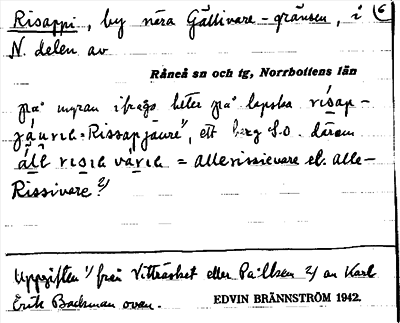 Risappi, by nära Gällivare-gränsen, i 6
N. delen av
Råneå sn och tg, Norrbottens län
på myran ifråga heter på lapska risap-
jáuric = Rissapjaure 1/, ett berg S.O. därom
áll risic váric = Allerissievare el. Alle-
Rissivare 2/
Uppgiften 1/ från Vitträsket eller 2/ av Karl
Erik Backman ovan.
EDVIN BRÄNNSTRÖM 1942.